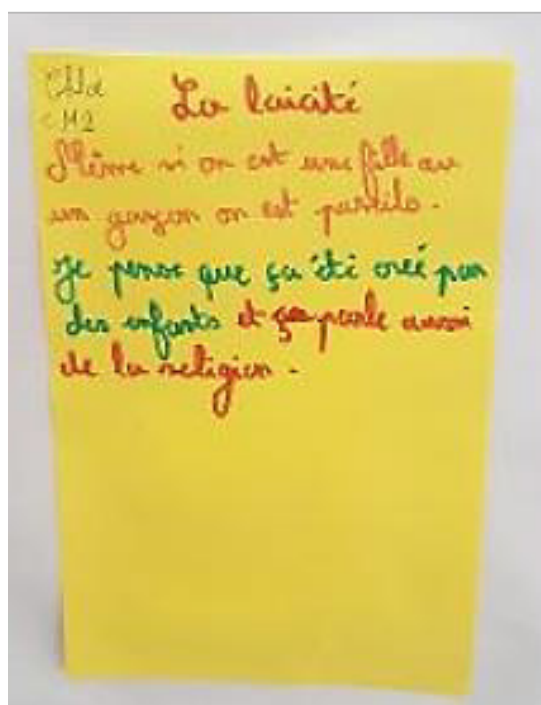 CM2
La laicité
Même si on est une fille ou
un garçon on est pareils.
Je pense que ça été creé par
des enfants et ça parle aussi
de la religion.